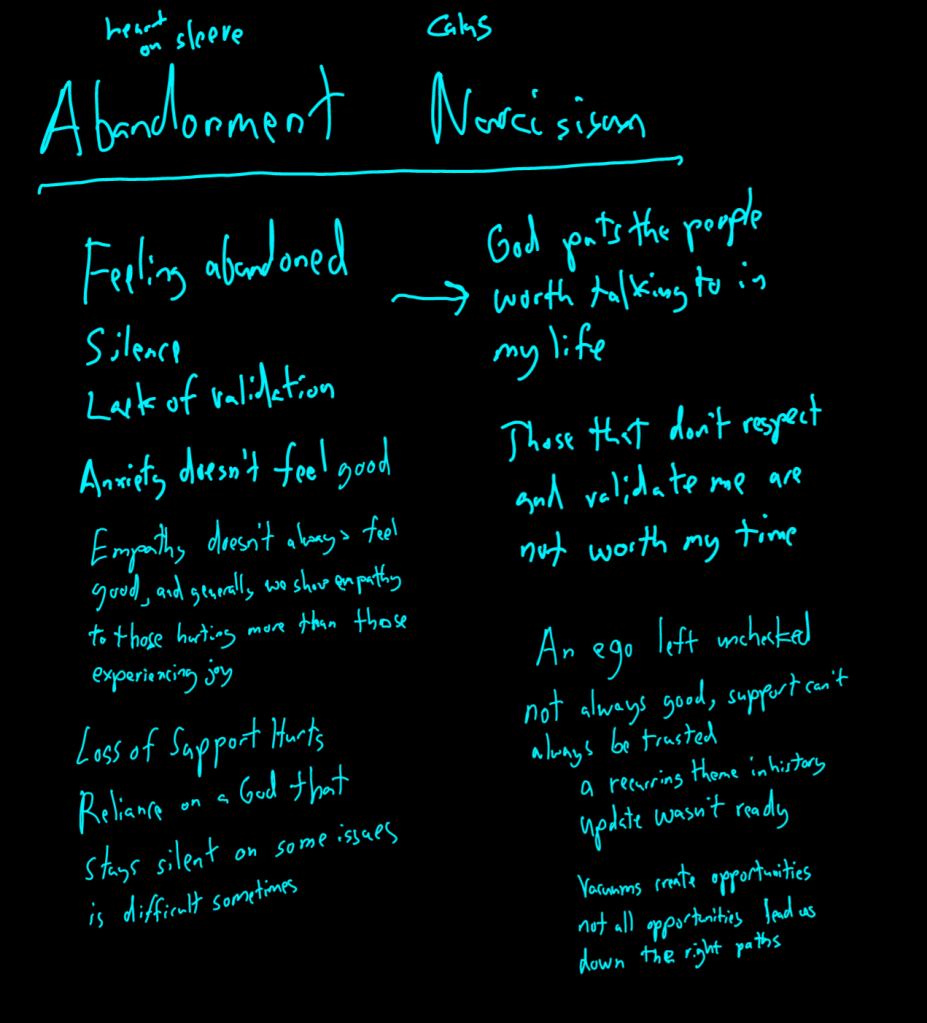 heart
on sleeve
Abandonment
Feeling abandoned
Silence
Lack of validation
Anxiety doesn't feel good
Empathy doesn't always feel
good, and generally we show empathy
to those hurting more than those
experiencing joy
Loss of Support Hurts
Reliance on a God that
stays silent on some issues
is difficult sometimes
Narcisisum
→ God puts the people
worth talking to in
my life
Those that don't respect
and validate me are
not worth my time
An ego left unchecked
not always good, support can't
always be trusted
a recurring theme in history
update wasn't ready
Vacuums create opportunities
not all opportunities lead us
down the right paths